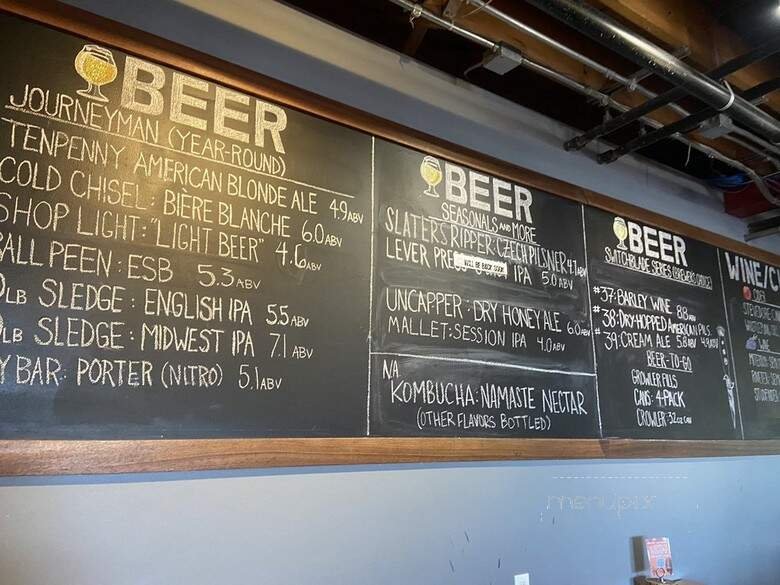 BEER
JOURNEYMAN (YEAR-ROUND)
TENPENNY AMERICAN BLONDE ALE 4.9 ABV
COLD CHISEL: BIÈRE BLANCHE 6.0 ABV
SHOP LIGHT: "LIGHT BEER" 4.6 ABV
ALL PEEN: ESB 5.3 ABV
LB SLEDGE: ENGLISH IPA 5.5 ABV
LB SLEDGE: MIDWEST IPA 7.1 ABV
Y BAR: PORTER (NITRO) 5.1 ABV
BEER
SEASONALS AND MORE
SLATERS RIPPER: CZECH PILSNER 4.7 ABV
LEVER PRE WILL BE BACK SOON IPA 5.0 ABV
UNCAPPER: DRY HONEY ALE 6.0 ABV
MALLET: SESSION IPA 4.0 ABV
N/A
KOMBUCHA: NAMASTE NECTAR
(OTHER FLAVORS BOTTLED)
BEER
SWITCHBLADE SERIES (BREWERS CHOICE)
#37: BARLEY WINE 8.8 ABV
#38: DRY HOPPED AMERICAN PILS
#39: CREAM ALE 5.8 ABV 4.9 ABV
BEER-TO-GO
GROWLER FILLS
CANS: 4-PACK
CROWLER 32oz CAN
WINE/C
CIDER
WINE
menupix